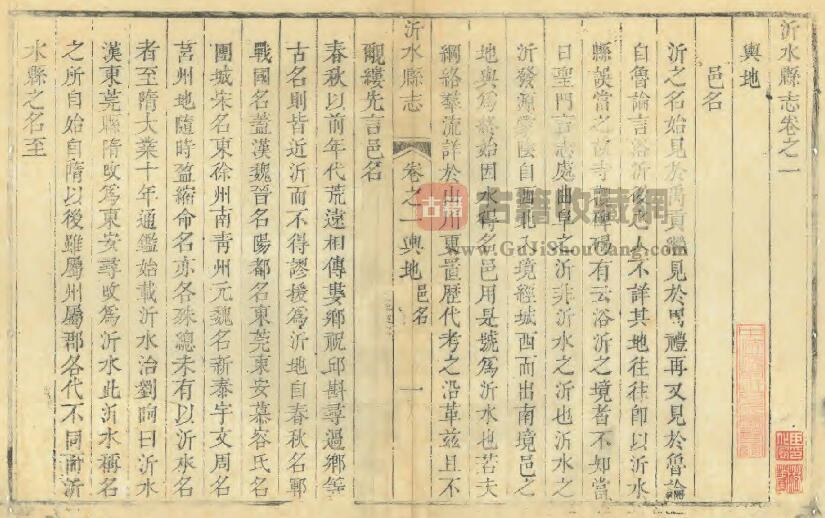 沂水縣志卷之一
輿地
邑名
沂之名始見於禹貢繼見於周禮再又見於魯論
自魯論言浴沂後之人不詳其地往往即以沂水
縣誤當之故寺觀碑碣有云浴沂之境者不知當
日聖門言志處曲阜之沂非沂水之沂也沂水之
沂發源蒙陰自西北入境經城西而出南境邑之
地與為終始因水得名邑用是號為沂水也若夫
綱絡羣流詳於山川東置歷代考之沿革茲且不
沂水縣志
卷之一輿地 邑名
一
覼縷先言邑名
春秋以前年代荒遠相傳婁鄉祝邱斟尋過鄉等
古名則皆近沂而不得謬援為沂地自春秋名鄆
戰國名蓋漢魏晉名陽都名東莞東安慕容氏名
團城宋名東徐州南青州元魏名新泰宇文周名
莒州地隨時盈縮命名亦各殊總未有以沂水名
者至隋大業十年通鑑始載沂水治劉昫曰沂水
漢東莞縣隋改為東安尋改為沂水此沂水稱名
之所自始自隋以後雖屬州屬郡各代不同而沂
水縣之名至
古籍收藏網
www.GuJiShouCang.com